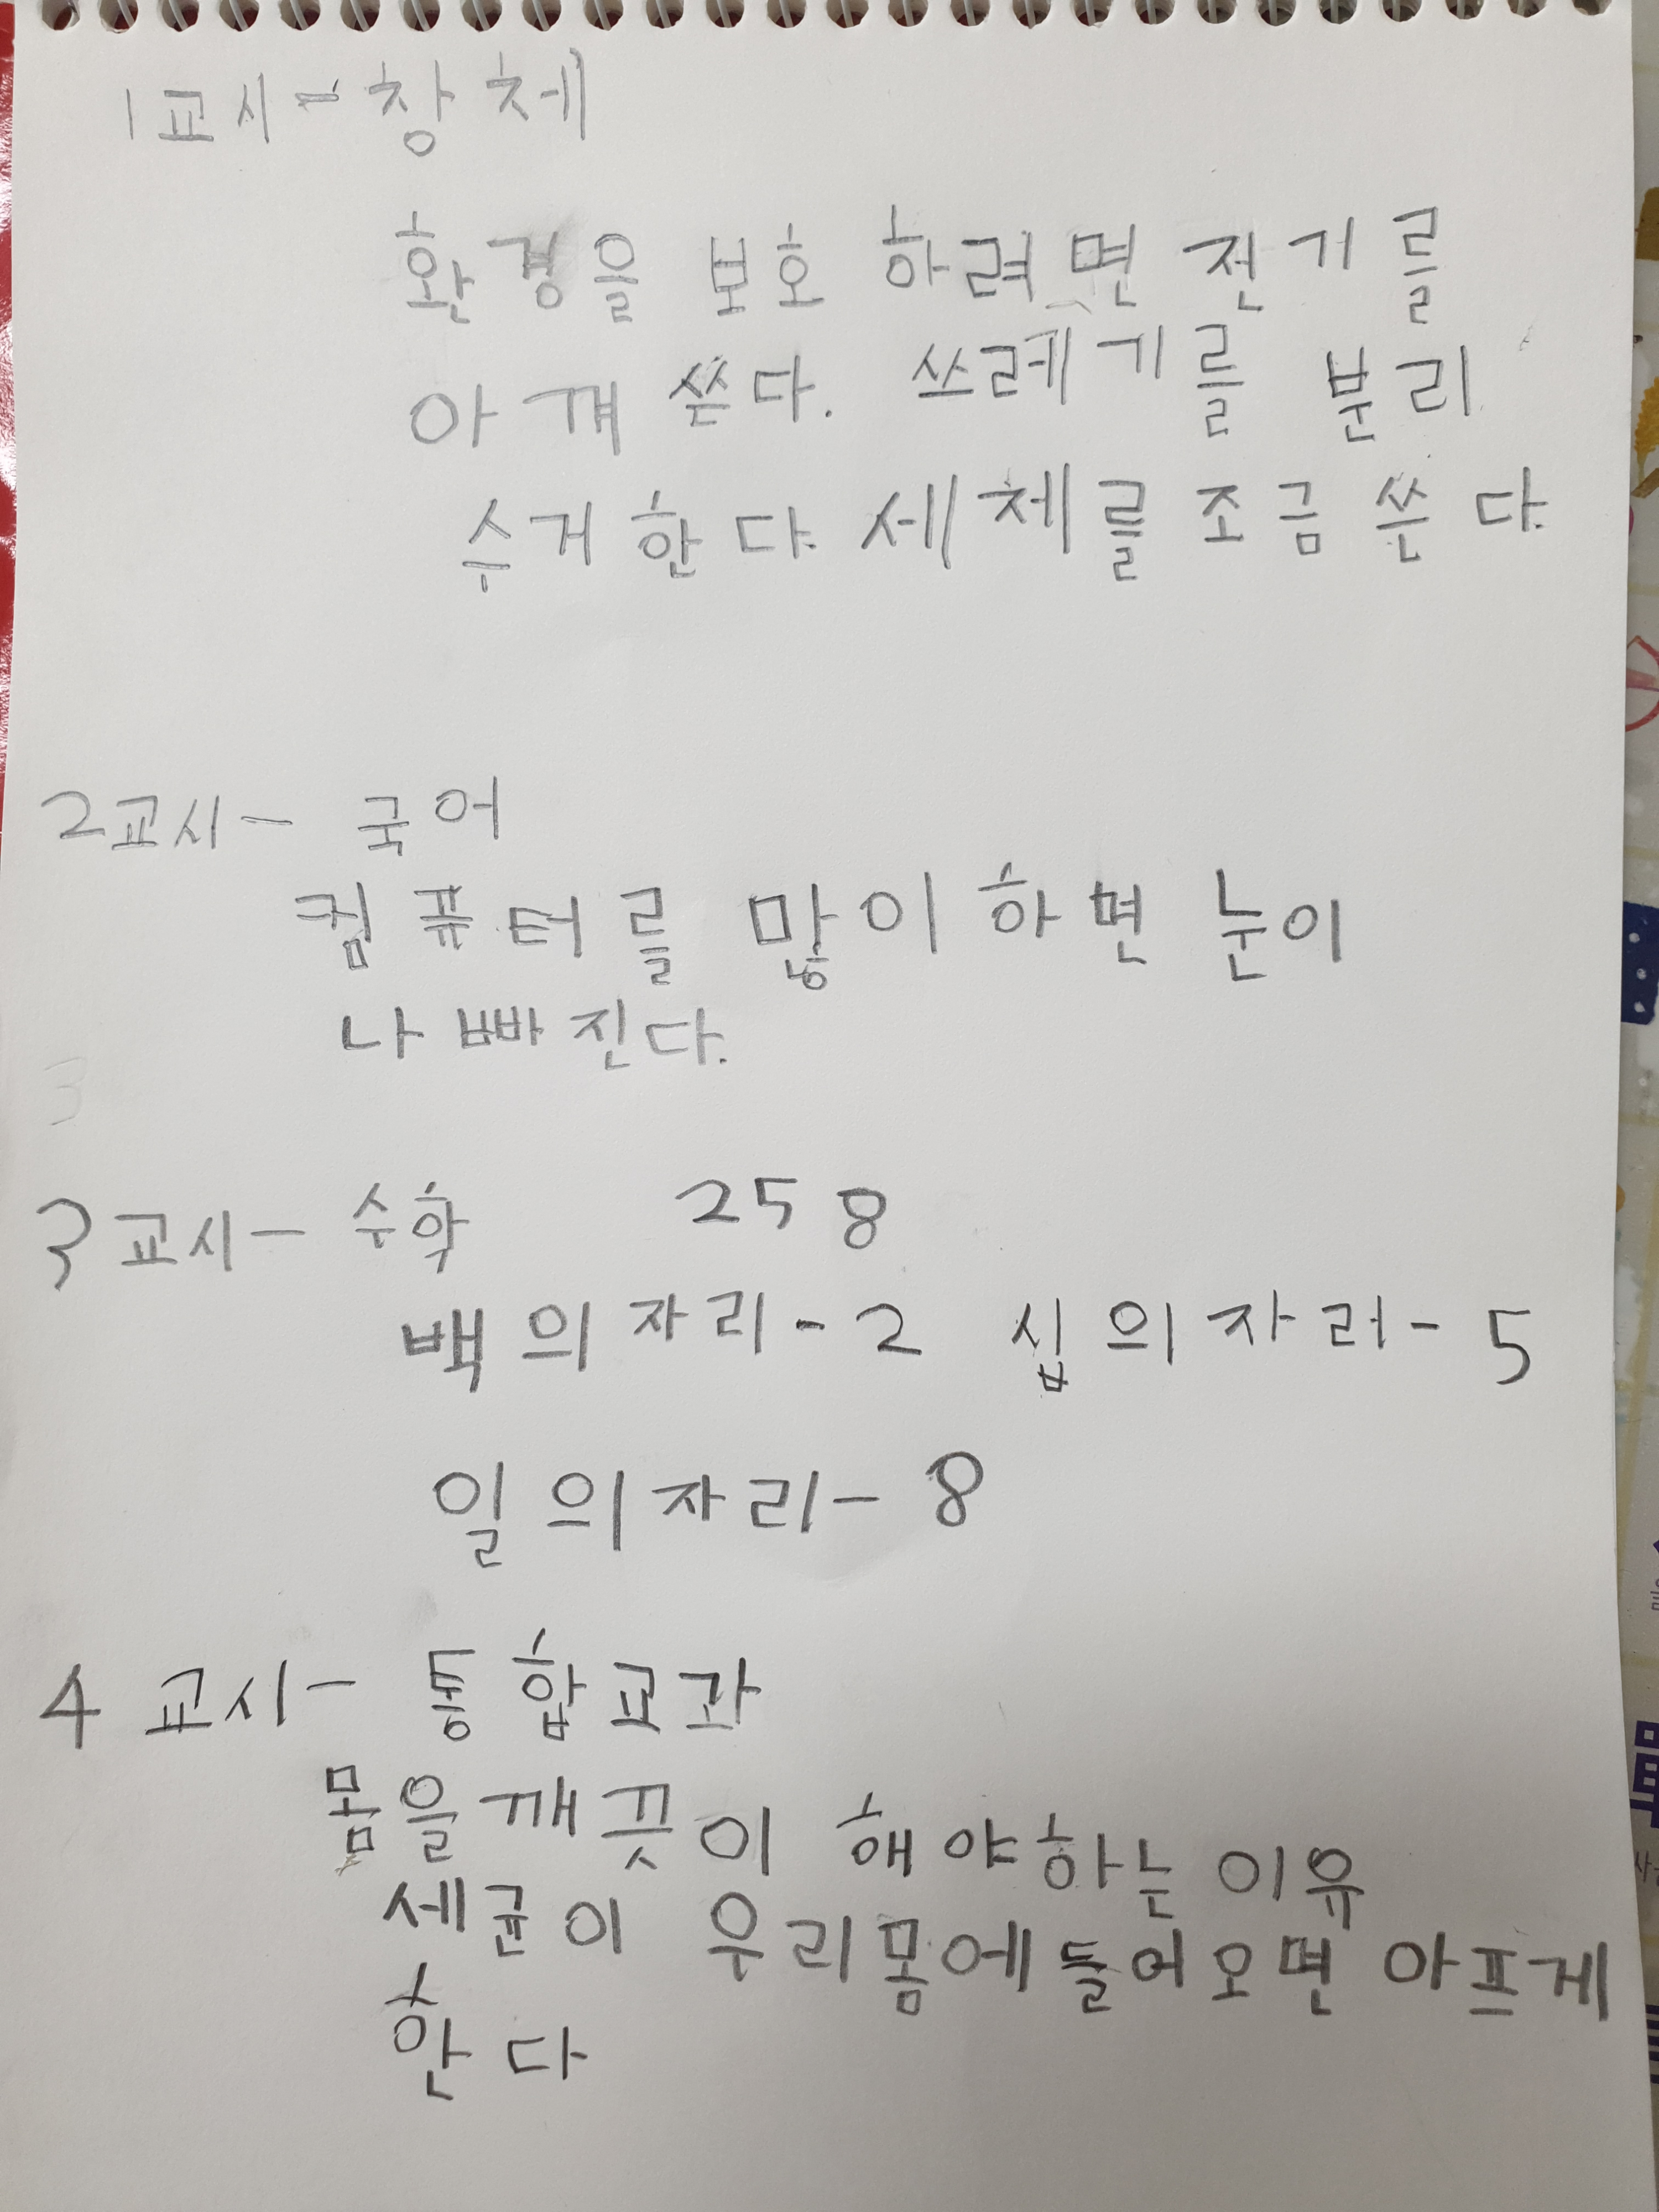 1교시 - 창체
환경을 보호 하려면 전기를
아껴 쓴다. 쓰레기를 분리
수거 한다. 세제를 조금 쓴다.
2교시 - 국어
컴퓨터를 많이 하면 눈이
나빠진다.
3
3교시 - 수학 258
백의 자리 - 2 십의 자리 - 5
일의 자리 - 8
4교시 - 통합교과
몸을 깨끗이 해야하는 이유
세균이 우리몸에 들어오면 아프게
한다